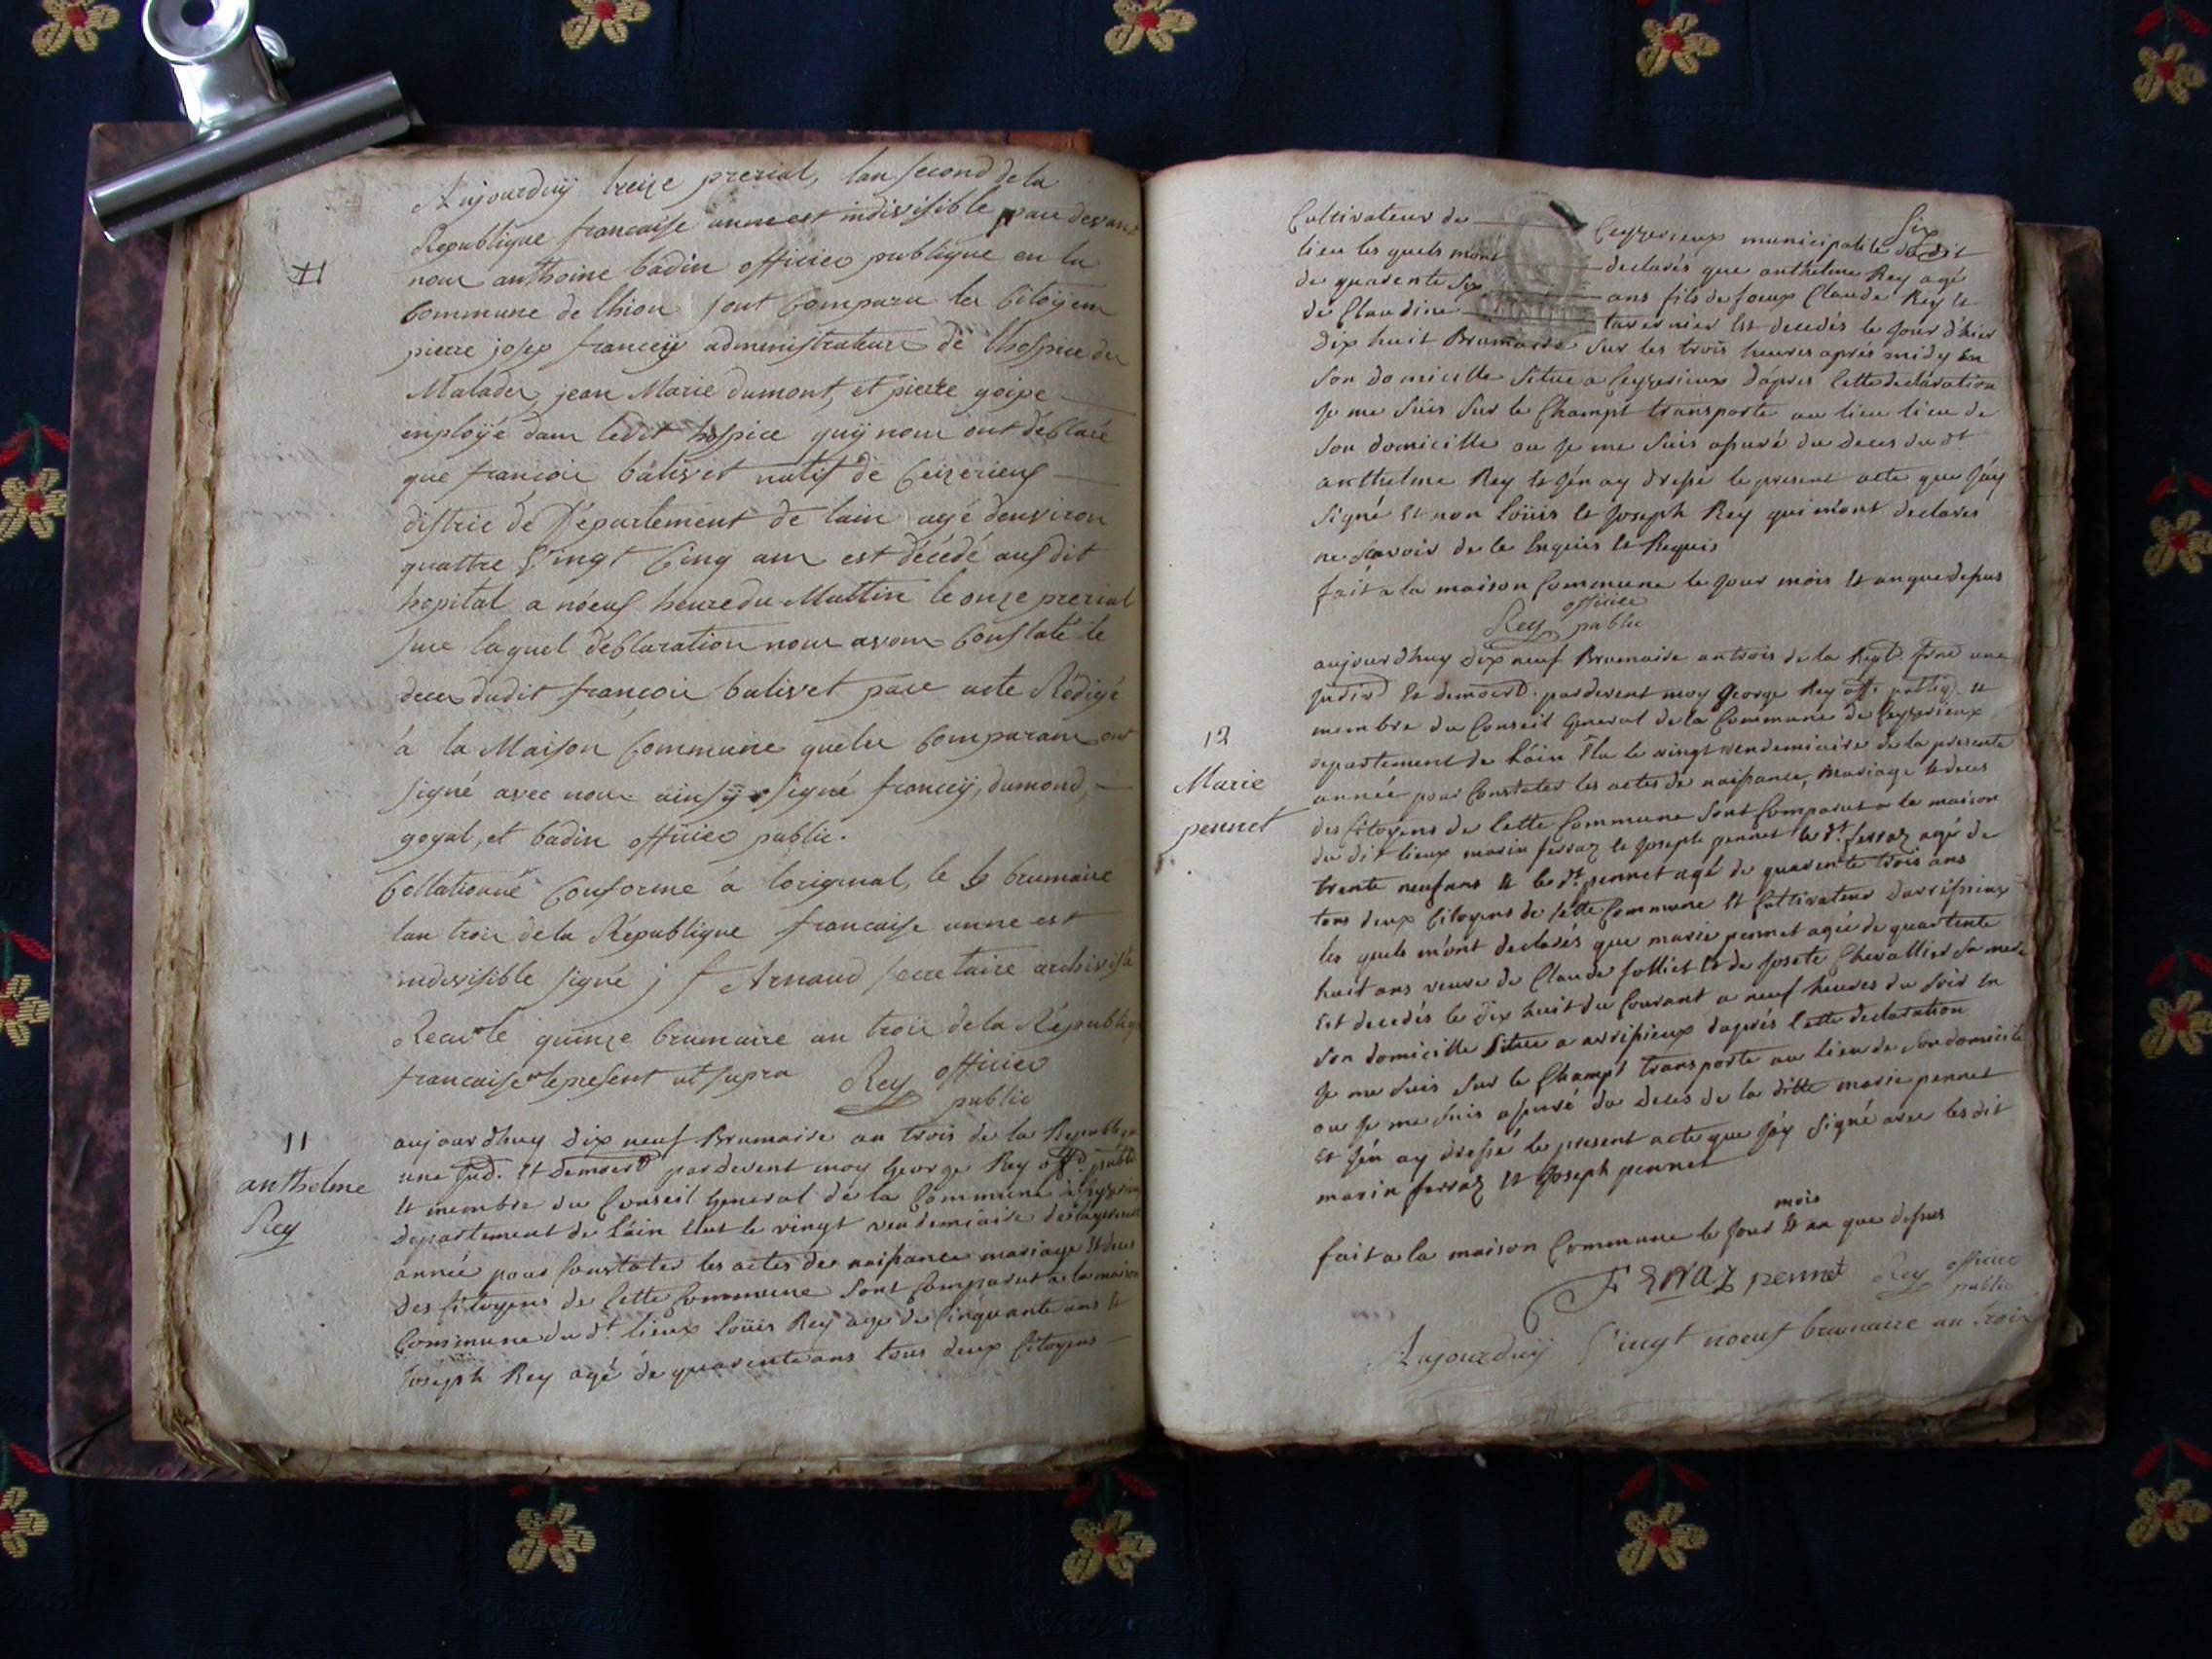 Aujourduÿ treize prerial, lan second de la
Republique francaise unne est indivisible pare devant
nous anthoine badin officier publique en la
commune de lhion sont comparu les citoÿens
pierre josep francey administrateure de lhospice des
Malades, jean Marie dumont, et pierre goipe
emploÿé dans ledit hospice quÿ nous ont déclaré
que françois balivet natif de Ceizerieux
distric de Département de lain agé denviron
quattre vingt Cinq ans est décédé aus dit
hopital a nœuf heure du Mattin le onze prerial
sure laquel déclaration nous avons constaté le
deces dudit françois balivet pare acte Rédigé
à la Maison Commune que les comparans ont
signé avec nous ainsÿ signé francey, dumond,
goyal, et badin officier public.
Collationné Conforme à loriginal, le brumaire
lan trois de la République francaise unne est
indivisible signé j f Arnaud secretaire archiviste
Recu le quinze brumaire an trois de la Républiq
francaise le present ut supra Rey officier
public
11
anthelme
Rey
aujourdhuy dix neuf Brumaire an trois de la Republiq
une Jnd. et democrd pardevent moy George Rey offr. publi
et membre du Conseil General de la Commune de Ceyzerieux
departement de L'ain élut le vingt vendemiaire de la presente
année pour Constater les actes de naissance mariage et deces
des Citoyens de Cette Commune sont Comparut a la maison
Commune du dt. lieux Loüis Rey agé de Cinquante ans et
Joseph Rey agé de quarente ans tous deux Citoyens
Six
Cultivateur de Ceyzerieux municipalité dudit
lieu les quels mont declarés que anthelme Rey agé
de quarente six ans fils de foeux Claude Rey et
de Claudine tavernier Est decedés le jour d'hier
Dix huit Brumaire sur les trois heures aprés midy En
son domicille situe a Ceyzerieux d'aprés Cette declaration
Je me suis sur le Champt transporté au lieu lieu de
son domicille ou Je me suis assuré du deces du dt
anthelme Rey et J'én ay dressé le present acte que J'áy
signé Et non Loüis et Joseph Rey qui m'ont declarés
ne scavoir de le Enquis et Requis
fait a la maison Commune le Jour mois et an que dessus
Rey officier
public
12
Marie
pennet
aujourdhuy dix neuf Brumaire an trois de la Rept. frnc une
Jndivd Et democrt. pardevent moy George Rey off. publiq. et
membre du Conseil General de la Commune de Ceyzerieux
departement de L'áin Elu le vingt vendemiaire de la presente
année pour Constater les actes de naissance, mariage et deces
des Citoyens de Cette Commune sont Comparut a la maison
du dit lieux marin ferraz et Joseph pennet le dt. ferraz agé de
trente neuf ans et le dt. pennet agé de quarente trois ans
tous deux Citoyens de Cette Commune Et Cultivateur d'avrissieux
les quels m'ont declarés que marie pennet agée de quartente
huit ans veuve de Claude folliet Et de Josete Chevallier sa mere
Est decedés le dix huit du Courant a neuf heures du soir En
son domicille situe a avrissieux d'aprés Cette declaration
Je me suis sur le Champt transporté au lieu de son domicile
ou Je me suis assuré du deces de la ditte marie pennet
Et J'én ay dressé le present acte que J'áy signé avec les dit
marin ferraz Et Joseph pennet
mois
fait a la maison Commune le Jour Et an que dessus
FERRAZ pennet Rey officier
public
Aujourduÿ Vingt nœuf brumaire an trois